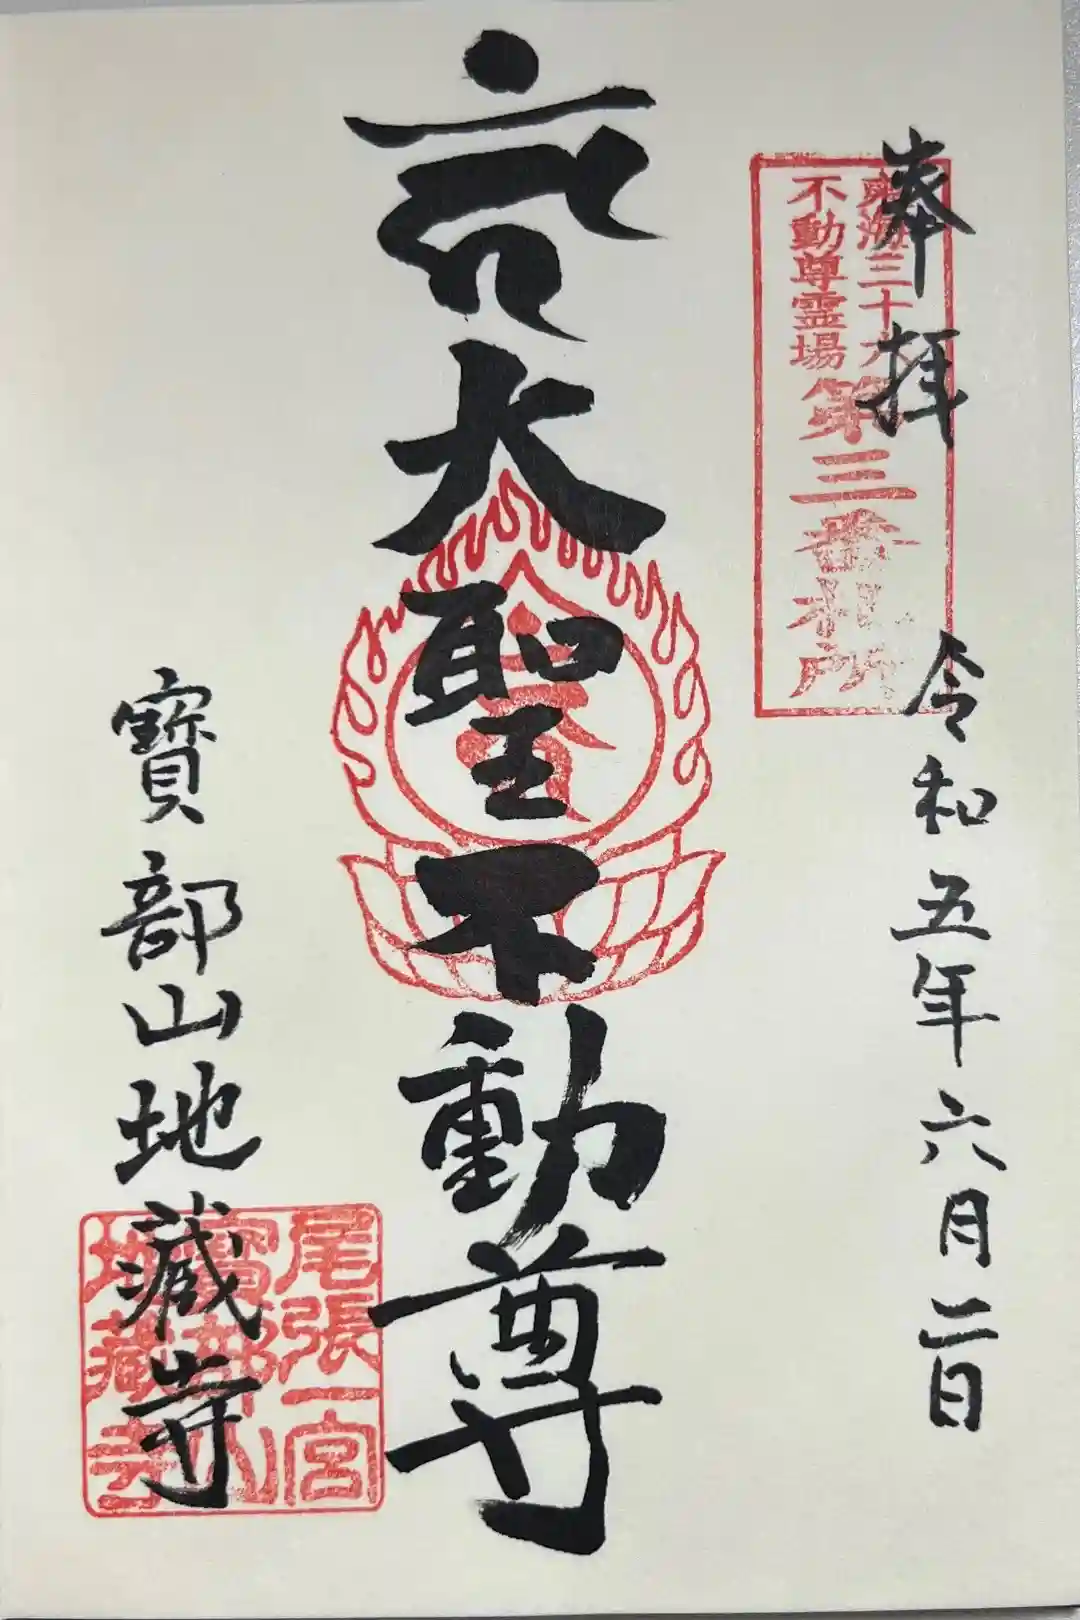 奉拝
令和五年六月二日
東海三十六
不動尊霊場
第三番札所
大聖不動尊
寶部山地蔵寺
尾張一宮
寶部山
地蔵寺